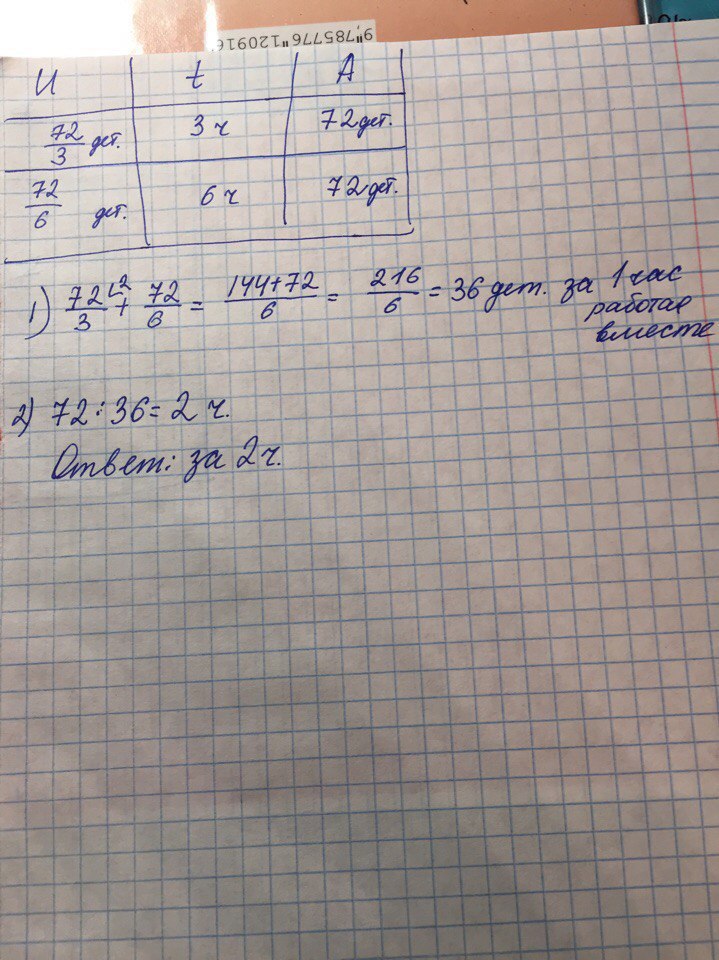 9"785776"120916
И t A
72/3 дет. 3 ч 72 дет.
72/6 дет. 6 ч 72 дет.
1) 72/3 ∟2 + 72/6 = 144+72/6 = 216/6 = 36 дет. за 1 час
работая
вместе
2) 72 : 36 = 2 ч.
Ответ: за 2 ч.